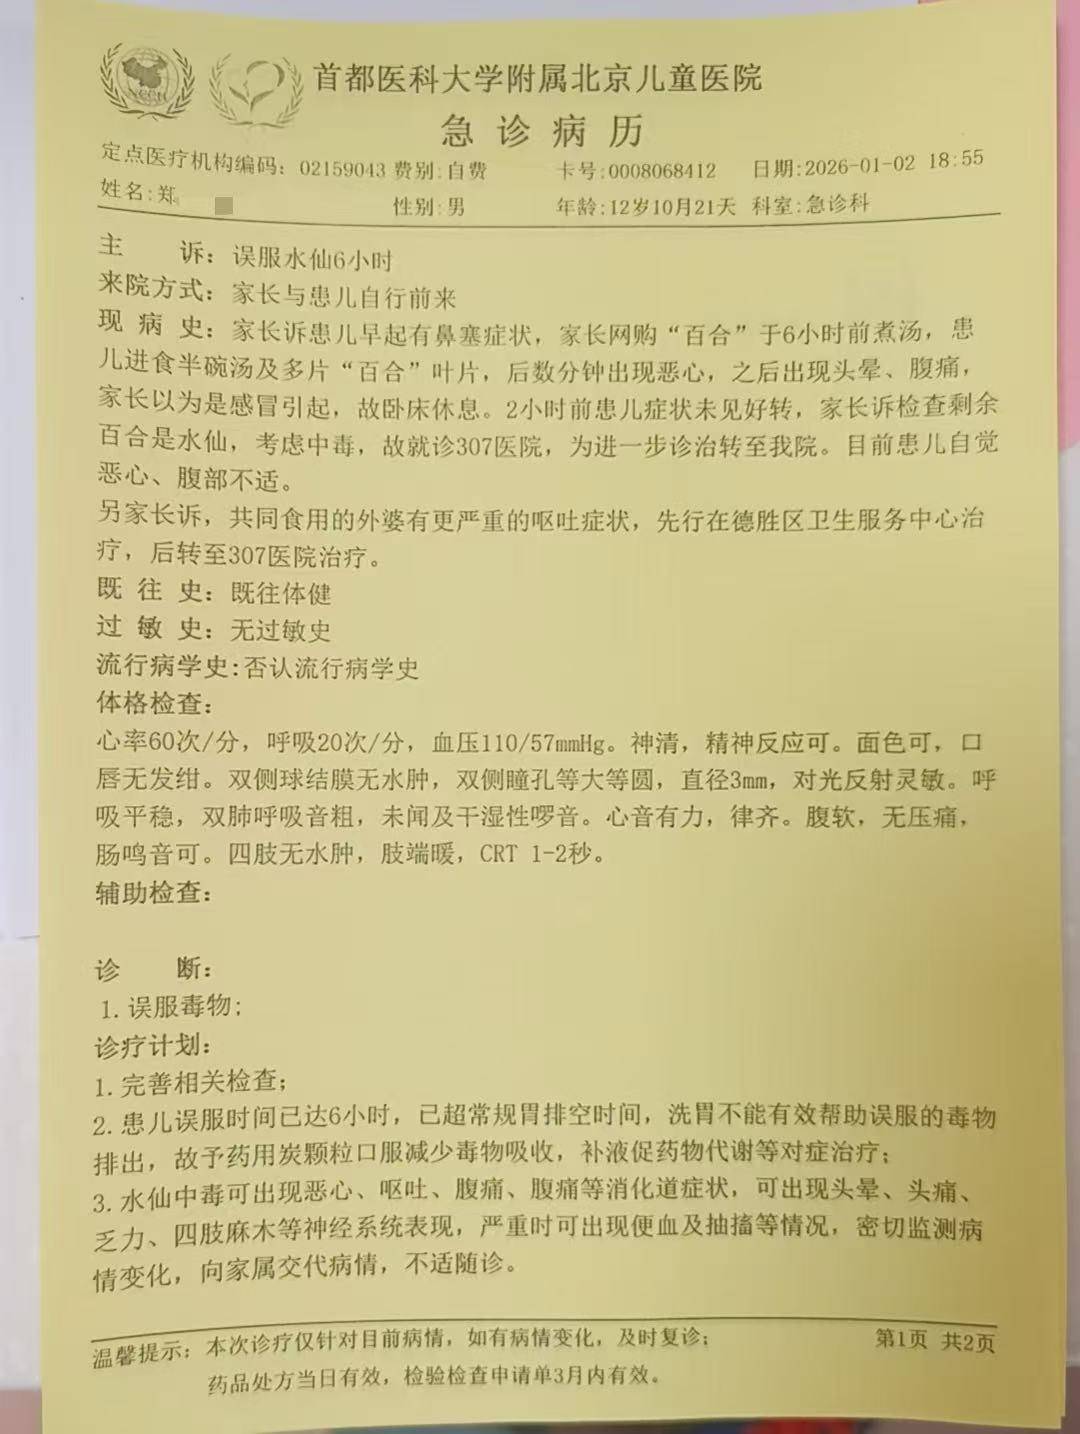 首都医科大学附属北京儿童医院
急诊病历
定点医疗机构编码：02159043 费别:自费 卡号:0008068412 日期:2026-01-02 18:55
姓名:郑 性别:男 年龄:12岁10月21天 科室:急诊科
主 诉：误服水仙6小时
来院方式：家长与患儿自行前来
现 病 史：家长诉患儿早起有鼻塞症状，家长网购“百合”于6小时前煮汤，患
儿进食半碗汤及多片“百合”叶片，后数分钟出现恶心，之后出现头晕、腹痛，
家长以为是感冒引起，故卧床休息。2小时前患儿症状未见好转，家长诉检查剩余
百合是水仙，考虑中毒，故就诊307医院，为进一步诊治转至我院。目前患儿自觉
恶心、腹部不适。
另家长诉，共同食用的外婆有更严重的呕吐症状，先行在德胜区卫生服务中心治
疗，后转至307医院治疗。
既 往 史：既往体健
过 敏 史：无过敏史
流行病学史:否认流行病学史
体格检查：
心率60次/分，呼吸20次/分，血压110/57mmHg。神清，精神反应可。面色可，口
唇无发绀。双侧球结膜无水肿，双侧瞳孔等大等圆，直径3mm，对光反射灵敏。呼
吸平稳，双肺呼吸音粗，未闻及干湿性啰音。心音有力，律齐。腹软，无压痛，
肠鸣音可。四肢无水肿，肢端暖，CRT 1-2秒。
辅助检查：
诊 断：
1.误服毒物;
诊疗计划：
1.完善相关检查；
2.患儿误服时间已达6小时，已超常规胃排空时间，洗胃不能有效帮助误服的毒物
排出，故予药用炭颗粒口服减少毒物吸收，补液促药物代谢等对症治疗；
3.水仙中毒可出现恶心、呕吐、腹痛、腹痛等消化道症状，可出现头晕、头痛、
乏力、四肢麻木等神经系统表现，严重时可出现便血及抽搐等情况，密切监测病
情变化，向家属交代病情，不适随诊。
温馨提示：本次诊疗仅针对目前病情，如有病情变化，及时复诊； 第1页 共2页
药品处方当日有效，检验检查申请单3月内有效。